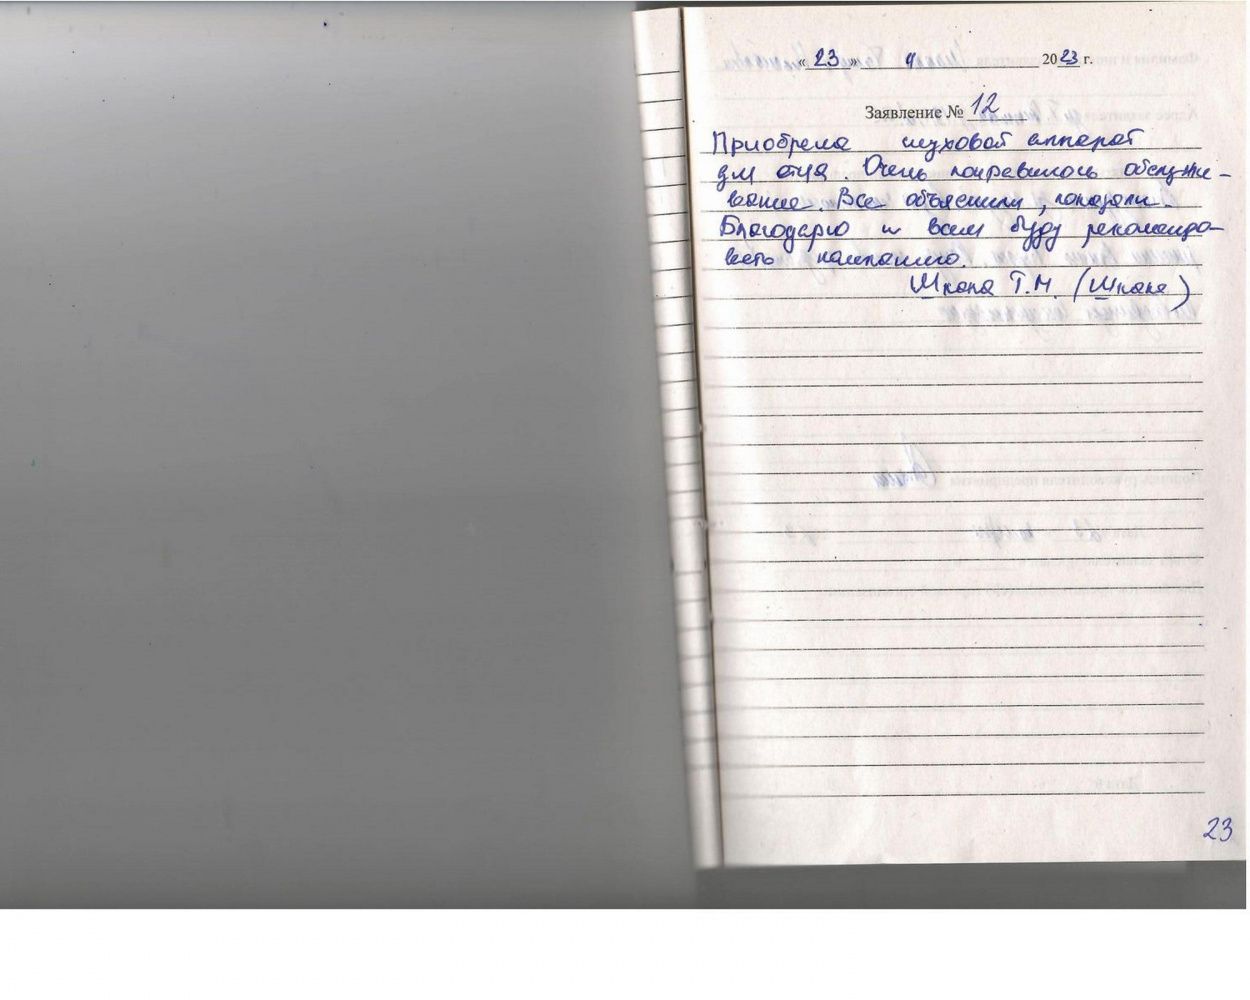 «23» 9 2023 г.
Заявление № 12
Приобрела слуховой аппарат
для отца. Очень понравилось обслужи-
вание. Все объяснили, показали.
Благодарю и всем буду рекомендо-
вать компанию.
Шкапа Т.М. (Шкапа)
23